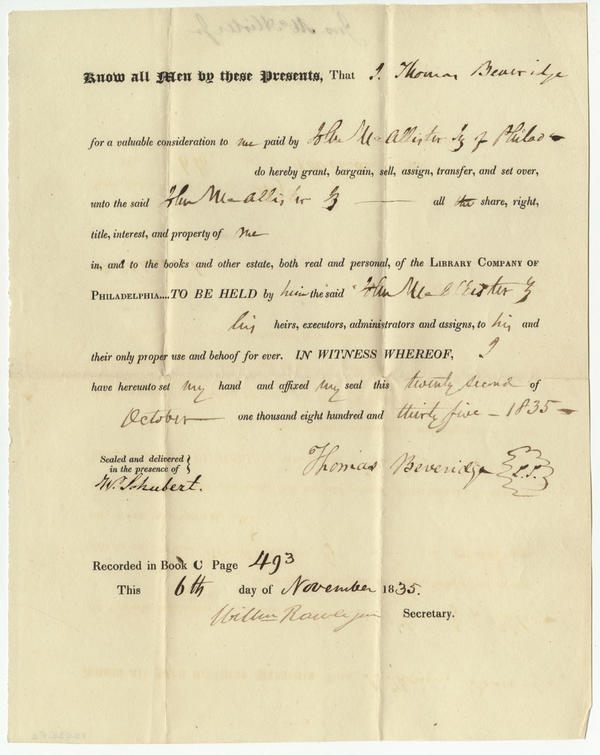 Know all Men by these Presents, That I, Thomas Beveridge
for a valuable consideration to me paid by John McAllister Jr of Philad
do hereby grant, bargain, sell, assign, transfer, and set over,
unto the said John McAllister Jr — all the share, right,
title, interest, and property of me
in, and to the books and other estate, both real and personal, of the LIBRARY COMPANY OF
PHILADELPHIA....TO BE HELD by him the said John McAllister Jr
his heirs, executors, administrators and assigns, to his and
their only proper use and behoof for ever. IN WITNESS WHEREOF, I
have hereunto set my hand and affixed my seal this twenty second of
October one thousand eight hundred and thirty five – 1835 –
Sealed and delivered
in the presence of
Thomas Beveridge L.S.
W. Schubert.
Recorded in Book C Page 493
This 6th day of November 1835.
William Secretary.